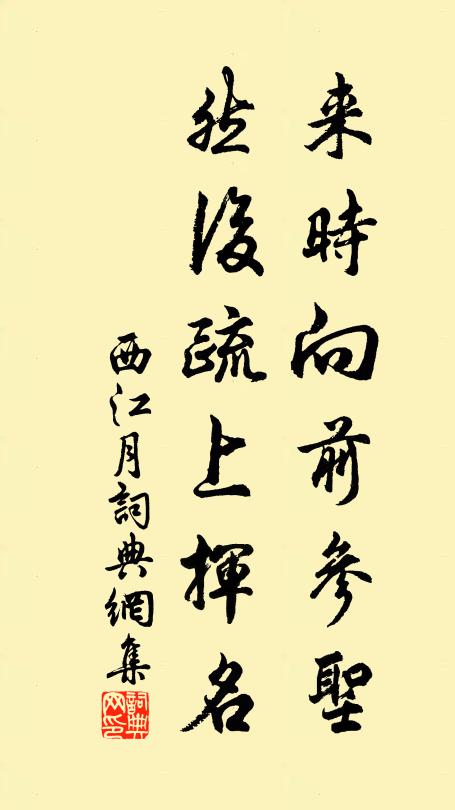 来時向前參聖
然後疏上揮名
西江月詞典網集
詞典网印